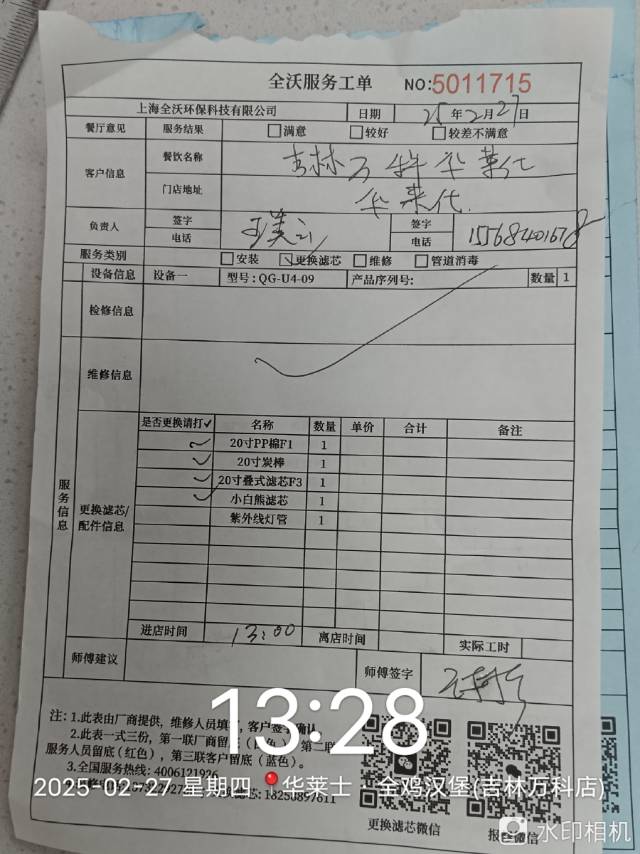 全沃服务工单 NO:5011715
上海全沃环保科技有限公司 日期 25年2月27日
餐厅意见 服务结果 满意 较好 较差不满意
客户信息 餐饮名称 吉林万科华莱仕
门店地址 华莱仕
负责人 签字 签字
电话 电话 15568401678
服务类别 安装 更换滤芯 维修 管道消毒
设备信息 设备一 型号:QG-U4-09 产品序列号: 数量 1
检修信息
维修信息
服务信息
更换滤芯/配件信息
是否更换请打✓ 名称 数量 单价 合计 备注
✓ 20寸PP棉F1 1
✓ 20寸炭棒 1
✓ 20寸叠式滤芯F3 1
✓ 小白熊滤芯 1
紫外线灯管 1
进店时间 13:00 离店时间 实际工时
师傅建议 师傅签字
13:28
注: 1.此表由厂商提供, 维修人员填写, 客户签字确认
2.此表一式三份, 第一联厂商留底 第二联
服务人员留底(红色), 第三联客户留底(蓝色)。
3.全国服务热线: 4006121926
2025-02-27 星期四 华莱士 全鸡汉堡(吉林万科店)
更换滤芯微信
水印相机